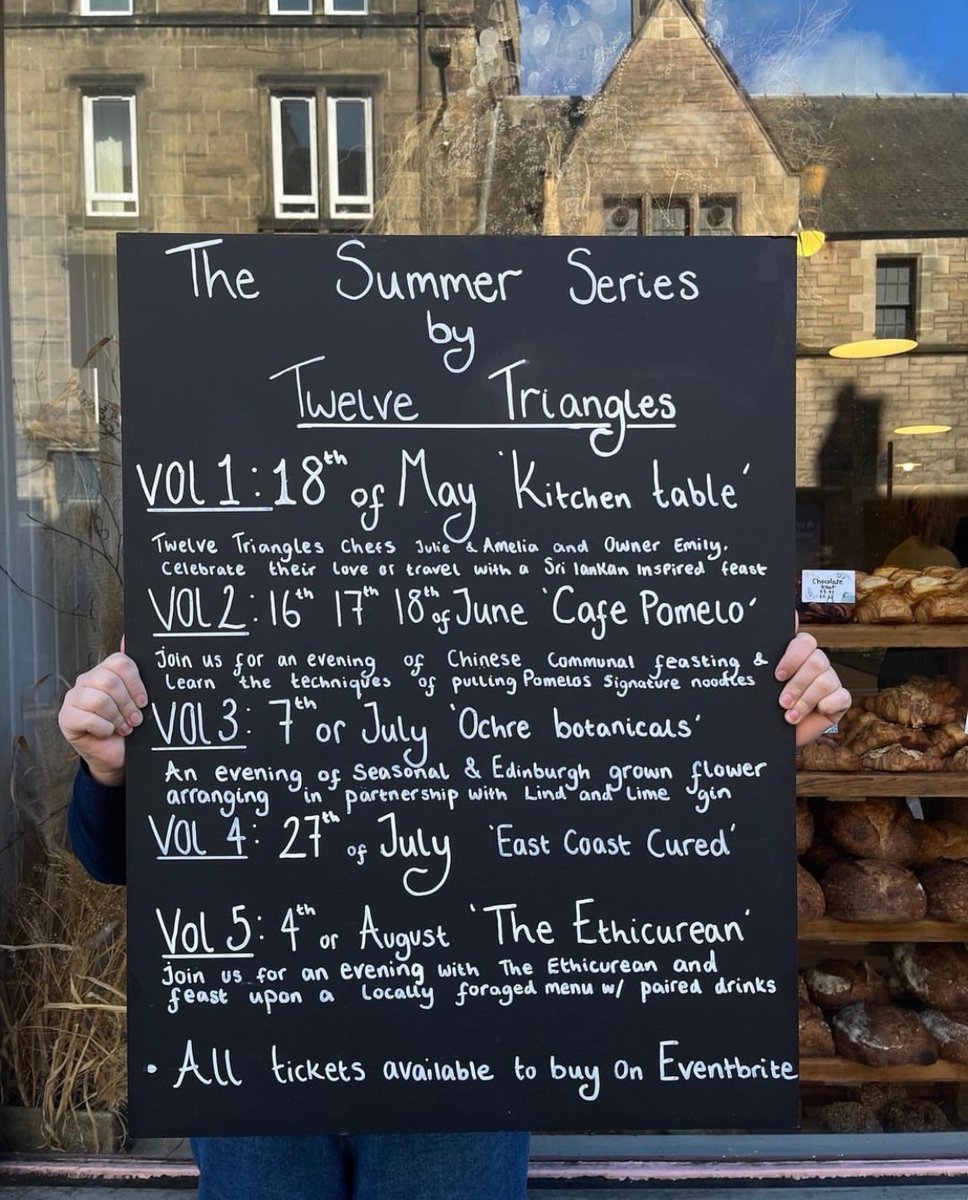 The Summer Series
by
Twelve Triangles
VOL 1: 18th of May 'Kitchen table'
Twelve Triangles Chefs Julie & Amelia and Owner Emily.
Celebrate their love of travel with a Sri lankan inspired feast
VOL 2: 16th 17th 18th of June 'Cafe Pomelo'
Join us for an evening of Chinese Communal feasting &
Learn the techniques of pulling Pomelos Signature noodles
VOL 3: 7th of July 'Ochre botanicals'
An evening of Seasonal & Edinburgh grown flower
arranging in partnership with Lind and Lime gin
VOL 4: 27th of July 'East Coast Cured'
Vol 5: 4th of August 'The Ethicurean'
Join us for an evening with The Ethicurean and
feast upon a Locally foraged menu w/ paired drinks
• All tickets available to buy on Eventbrite
Chocolate